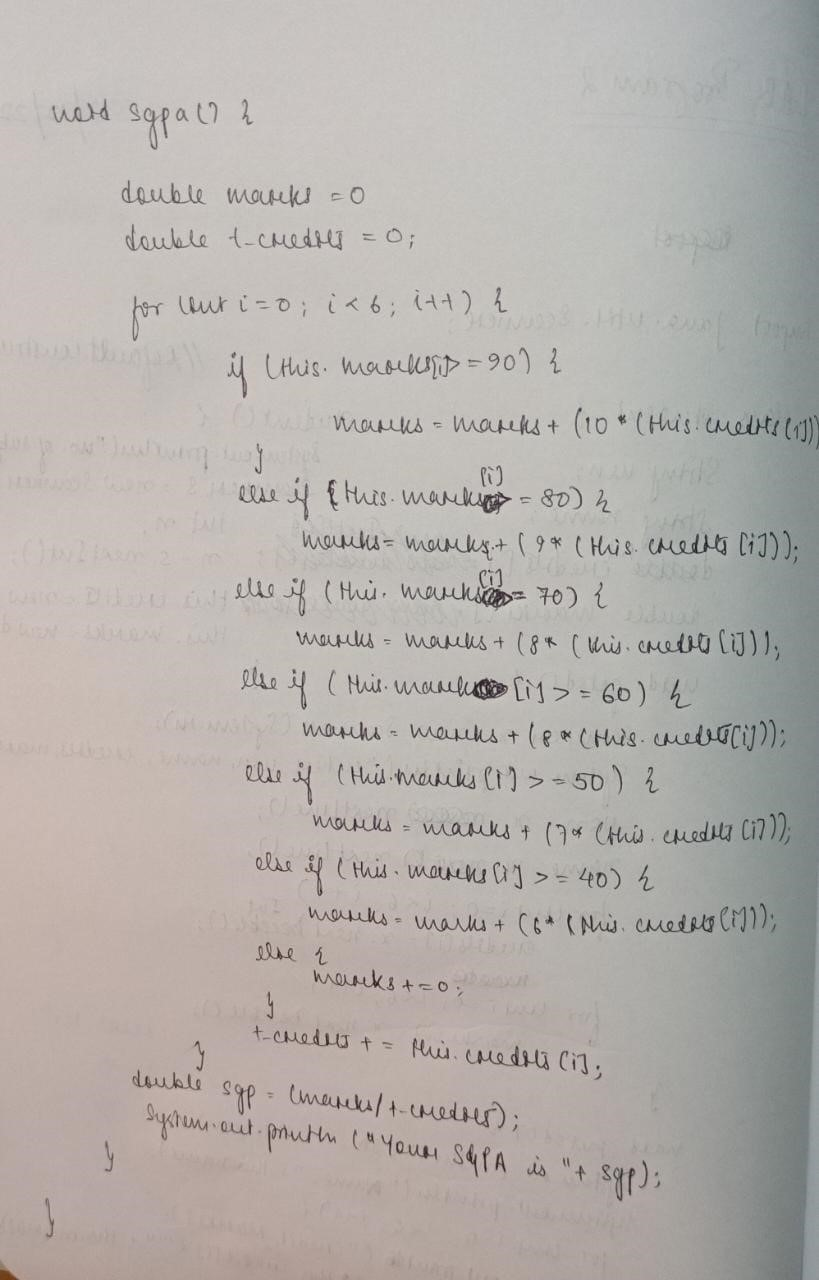 void sgpa() {
double marks = 0
double t_credits = 0;
for (int i=0; i<6; i++) {
if (this.marks[i]>=90) {
marks = marks + (10*(this.credits[i]))
}
else if (this.marks[i]>=80) {
marks = marks + (9*(this.credits[i]));
else if (this.marks[i]>=70) {
marks = marks + (8*(this.credits[i]));
else if (this.marks[i]>=60) {
marks = marks + (8*(this.credits[i]));
else if (this.marks[i]>=50) {
marks = marks + (7*(this.credits[i]));
else if (this.marks[i]>=40) {
marks = marks + (6*(this.credits[i]));
else {
marks+=0;
}
t_credits += this.credits[i];
}
double sgp = (marks/t_credits);
System.out.println("Your SGPA is "+ sgp);
}
}